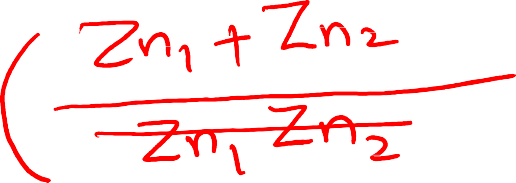 ( Zn₁ + Zn₂
Zn₁ Zn₂